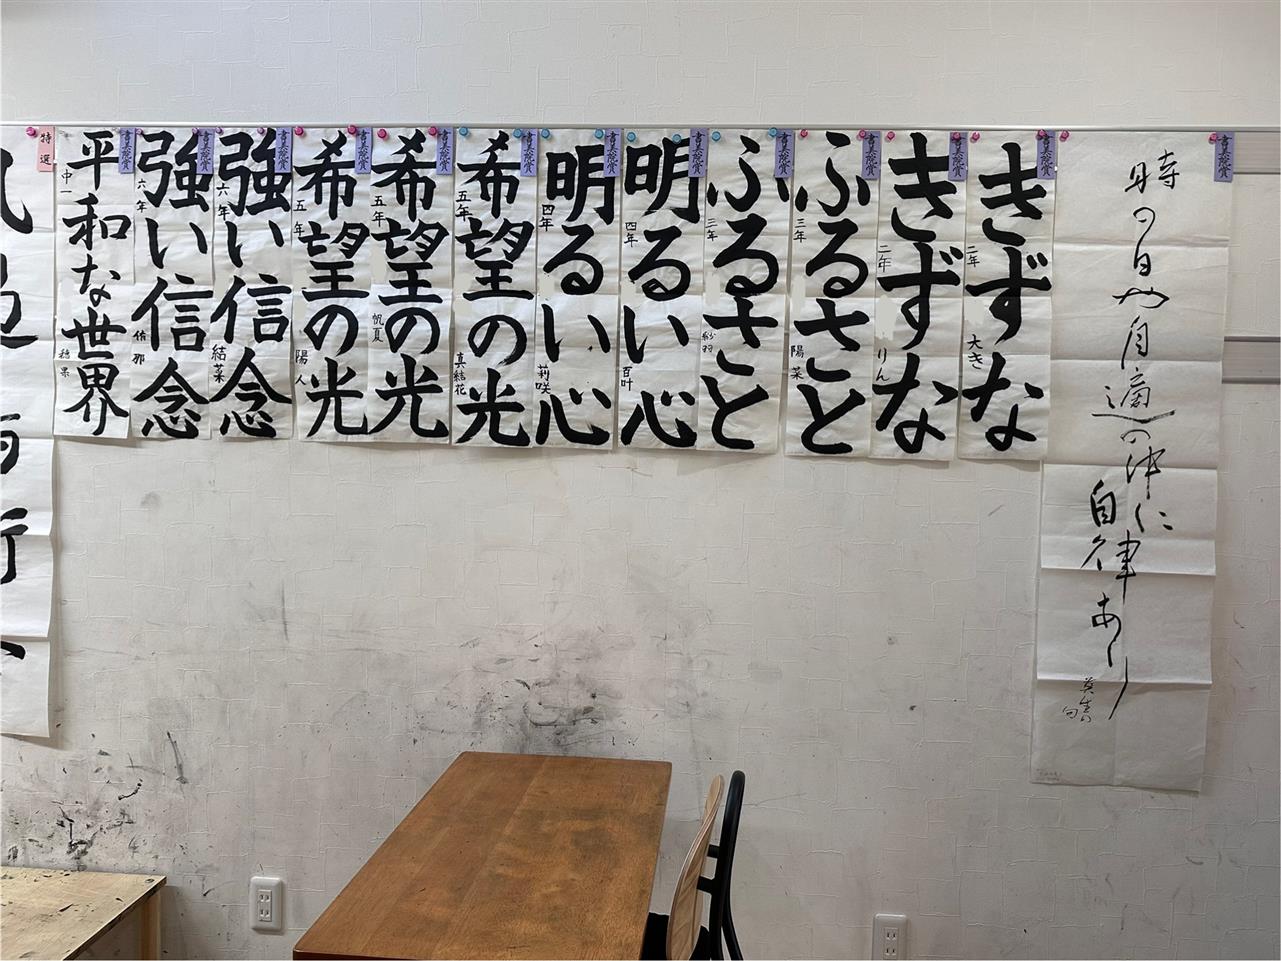 書美院賞
時の日や自適の中に
自律あり
書美院賞
きずな
二年
大き
書美院賞
きずな
二年
りん
書美院賞
ふるさと
三年
陽菜
書美院賞
ふるさと
三年
紗羽
書美院賞
明るい心
四年
百叶
書美院賞
明るい心
四年
莉咲
書美院賞
希望の光
五年
真結花
書美院賞
希望の光
五年
帆夏
書美院賞
希望の光
五年
陽人
書美院賞
強い信念
六年
結菜
書美院賞
強い信念
六年
侑那
書美院賞
平和な世界
中一
穂果
特選